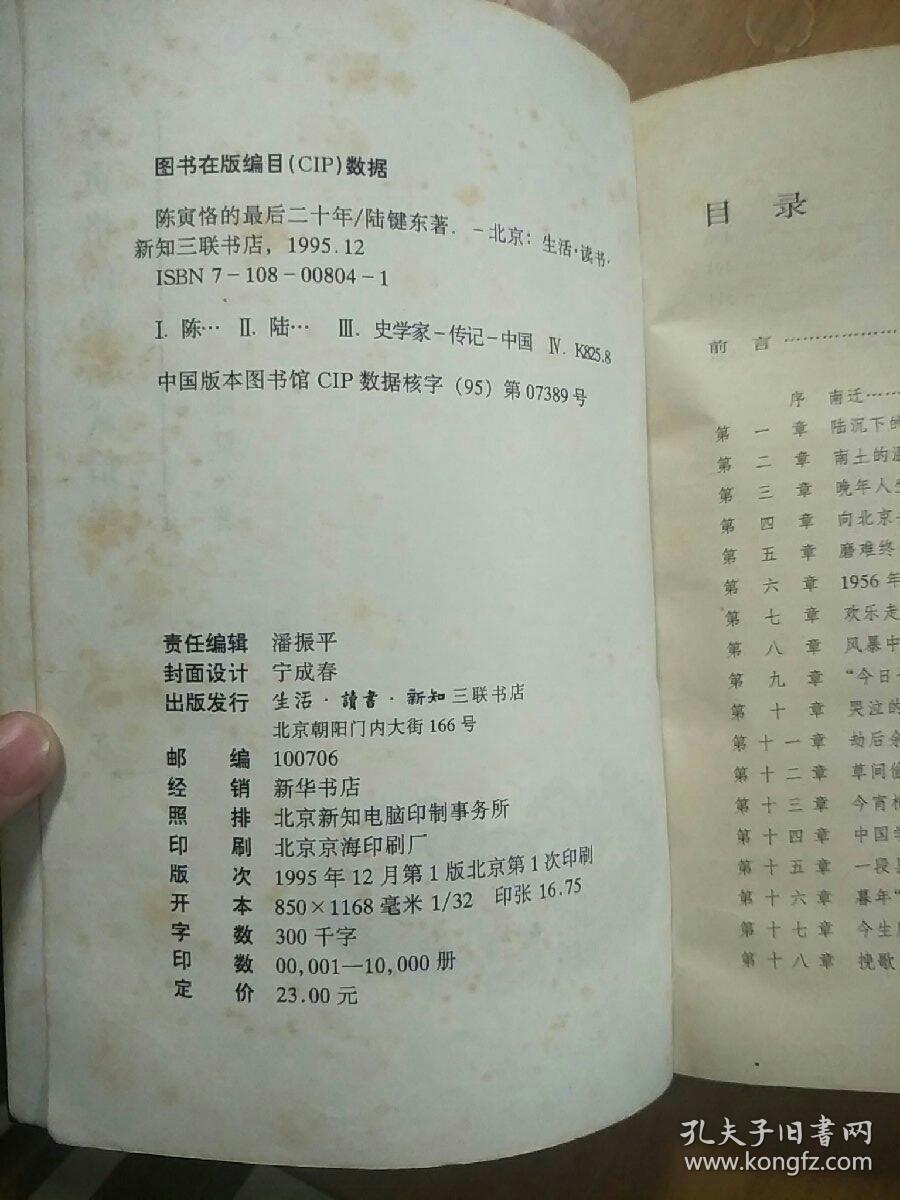 图书在版编目(CIP)数据
陈寅恪的最后二十年/陆键东著. -北京: 生活·读书·
新知三联书店, 1995.12
ISBN 7-108-00804-1
Ⅰ. 陈… Ⅱ. 陆… Ⅲ. 史学家-传记-中国 Ⅳ. K825.8
中国版本图书馆 CIP 数据核字 (95) 第 07389 号
责任编辑 潘振平
封面设计 宁成春
出版发行 生活·讀書·新知三联书店
北京朝阳门内大街 166 号
邮 编 100706
经 销 新华书店
照 排 北京新知电脑印制事务所
印 刷 北京京海印刷厂
版 次 1995 年 12 月第 1 版北京第 1 次印刷
开 本 850×1168 毫米 1/32 印张 16.75
字 数 300 千字
印 数 00,001—10,000 册
定 价 23.00 元
目 录
前 言…………………
序 南迁……
第 一 章 陆沉下的
第 二 章 南土的
第 三 章 晚年人
第 四 章 向北京
第 五 章 磨难终
第 六 章 1956 年
第 七 章 欢乐走
第 八 章 风暴中
第 九 章 “今日
第 十 章 哭泣的
第 十一 章 劫后
第 十二 章 草间
第 十三 章 今宵
第 十四 章 中国学
第 十五 章 一段
第 十六 章 暮年“
第 十七 章 今生
第 十八 章 挽歌
孔夫子旧书网
www.kongfz.com